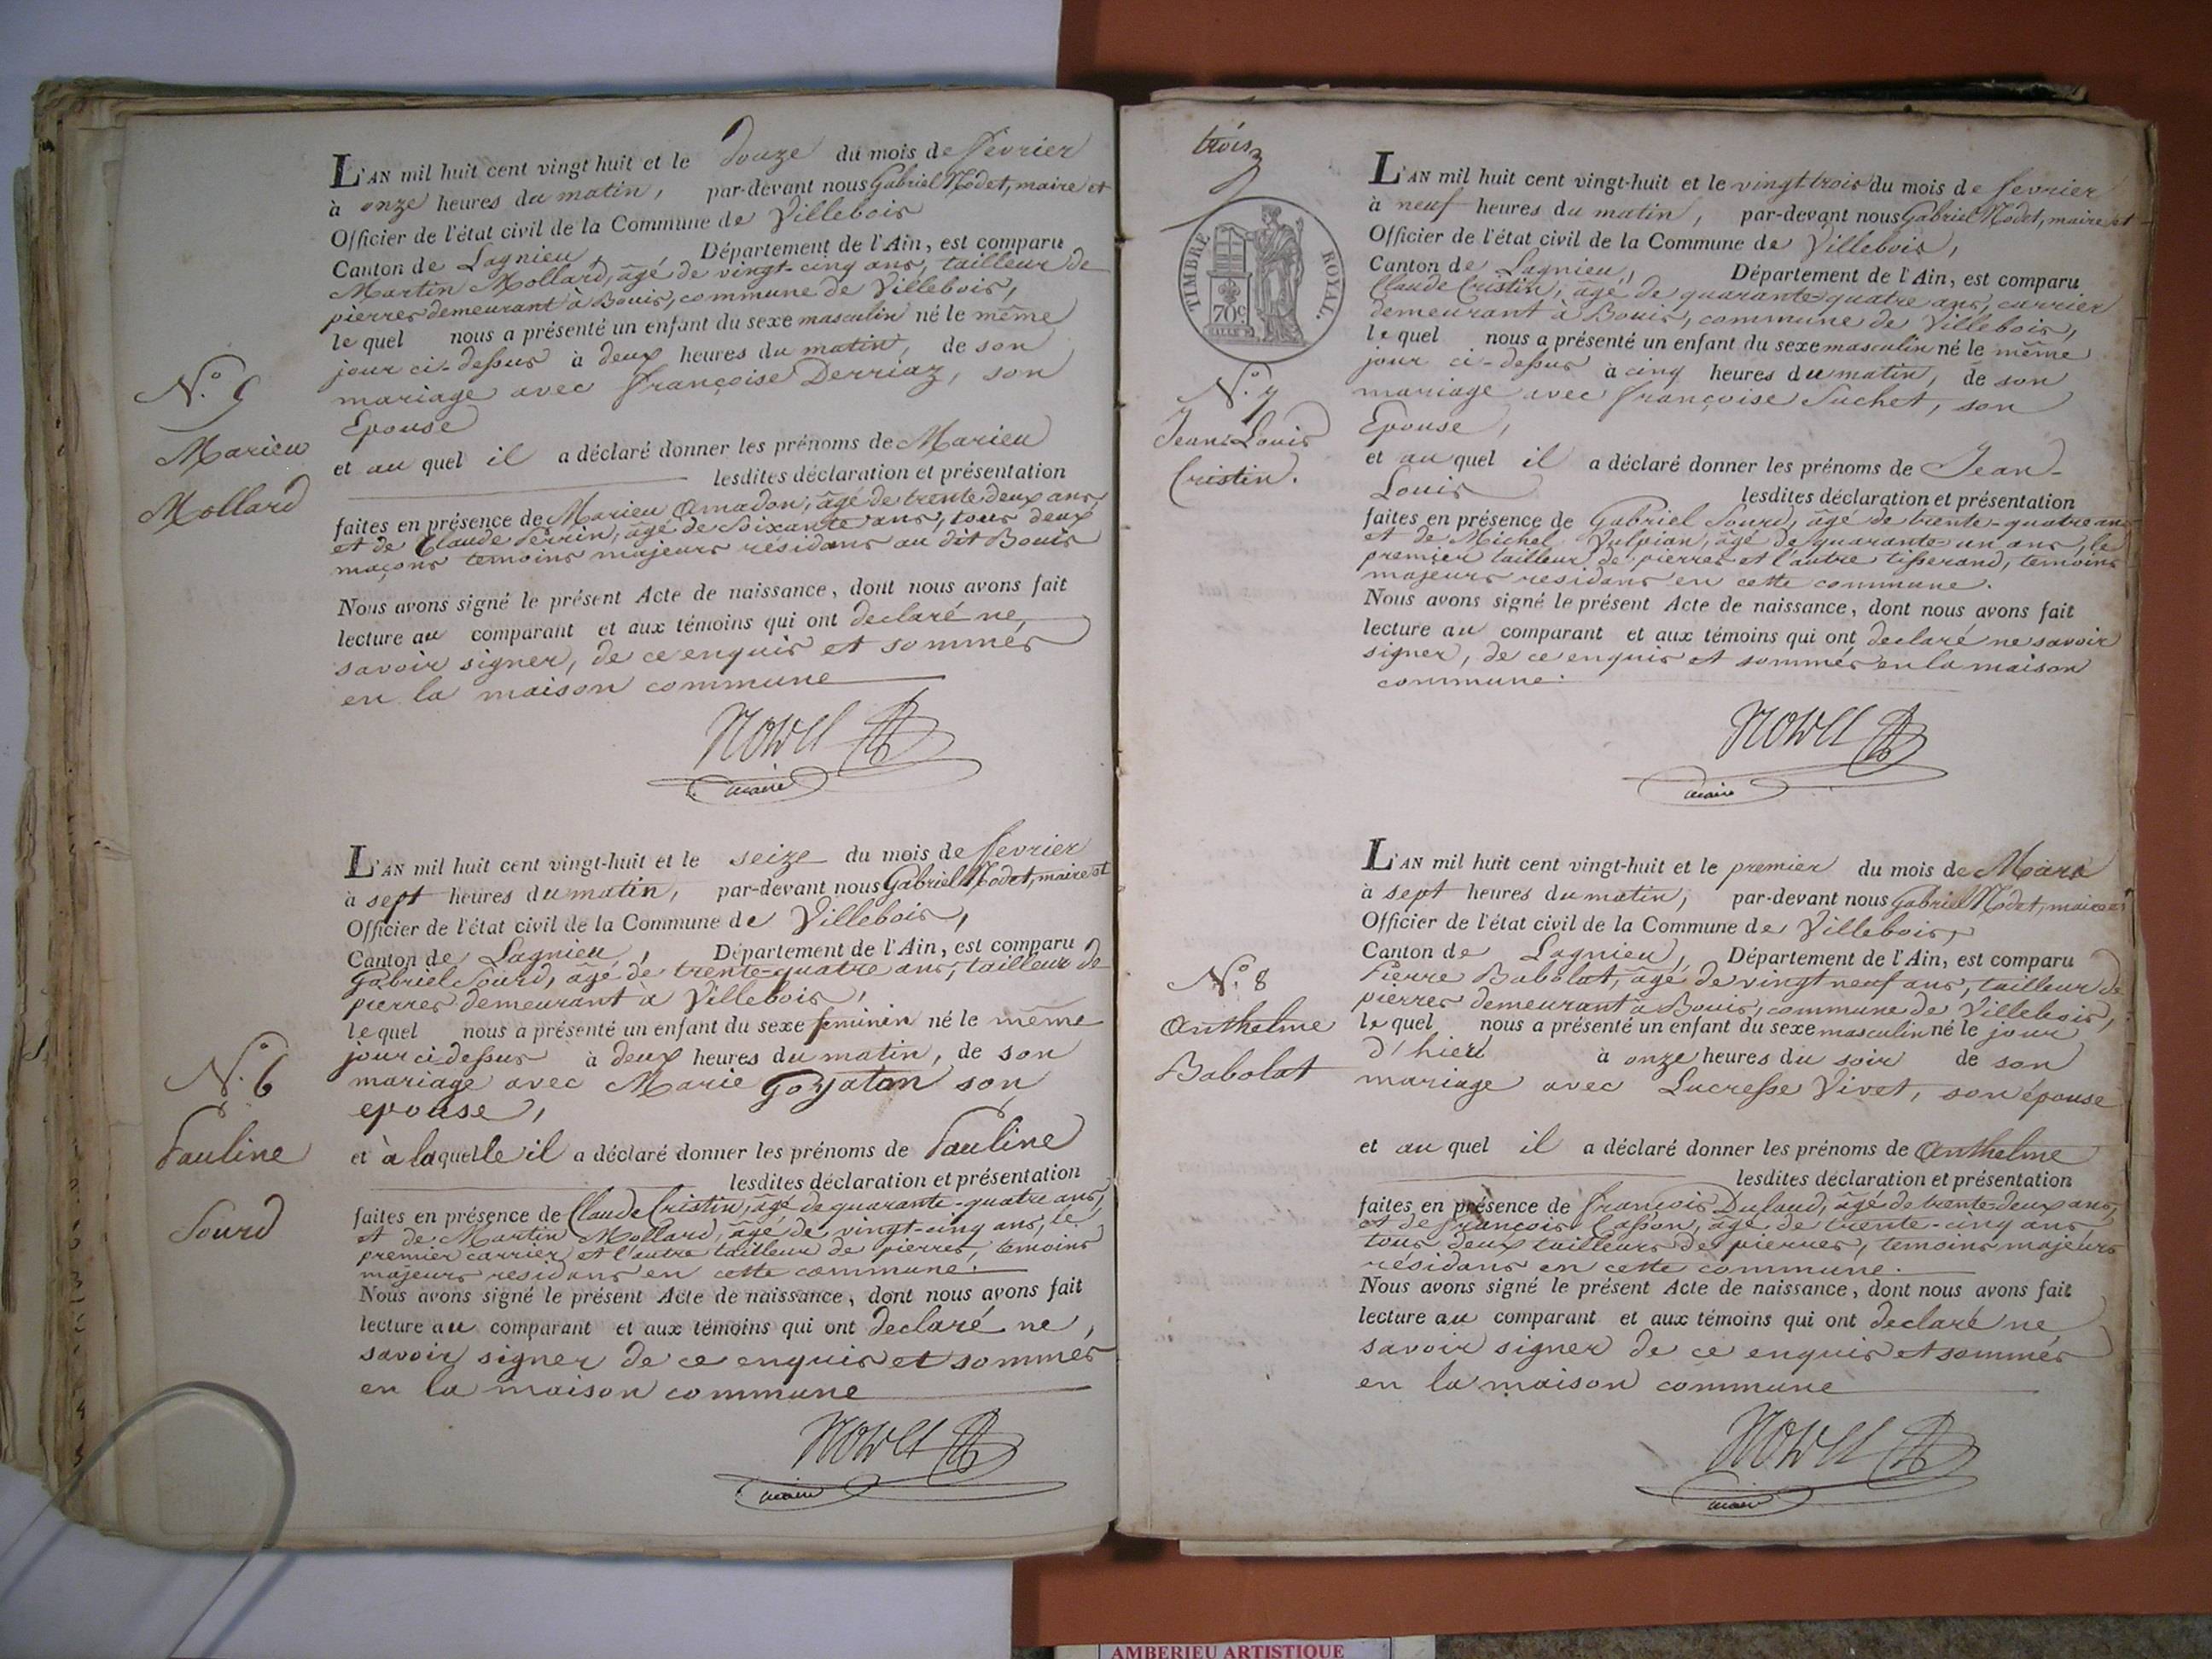 L'AN mil huit cent vingt huit et le douze du mois de fevrier
à onze heures du matin, par-devant nous Gabriel Nodet, maire et
Officier de l'état civil de la Commune de Villebois
Canton de Lagnieu Département de l'Ain, est comparu
Martin Mollard, âgé de vingt-cinq ans, tailleur de
pierres demeurant à Bouis, commune de Villebois,
le quel nous a présenté un enfant du sexe masculin né le même
jour ci-dessus à deux heures du matin, de son
mariage avec françoise Derriaz, son
Epouse
et au quel il a déclaré donner les prénoms de Marieu
lesdites déclaration et présentation
faites en présence de Marieu Amadon, âgé de trente deux ans,
et de Claude Perrin, âgé de soixante ans, tous deux
maçons temoins majeurs résidans au dit Bouis
Nous avons signé le présent Acte de naissance, dont nous avons fait
lecture au comparant et aux témoins qui ont declaré ne
savoir signer, de ce enquis et sommés
en la maison commune
Nodet
maire
N.° 5
Marieu
Mollard
L'AN mil huit cent vingt-huit et le seize du mois de fevrier
à sept heures du matin, par-devant nous Gabriel Nodet, maire et
Officier de l'état civil de la Commune de Villebois,
Canton de Lagnieu, Département de l'Ain, est comparu
Gabriel Sourd, âgé de trente-quatre ans, tailleur de
pierres demeurant à Villebois,
le quel nous a présenté un enfant du sexe feminin né le même
jour ci dessus à deux heures du matin, de son
mariage avec Marie Goyaton son
epouse,
et à laquelle il a déclaré donner les prénoms de Pauline
lesdites déclaration et présentation
faites en présence de Claude Cristin, âgé de quarante-quatre ans,
et de Martin Mollard, âgé de vingt-cinq ans, le
premier carrier et l'autre tailleur de pierres, temoins
majeurs residans en cette commune.
Nous avons signé le présent Acte de naissance, dont nous avons fait
lecture au comparant et aux témoins qui ont declaré ne,
savoir signer de ce enquis et sommés
en la maison commune
Nodet
maire
N.° 6
Pauline
Sourd
trois
TIMBRE ROYAL.
70c
L'AN mil huit cent vingt-huit et le vingt trois du mois de fevrier
à neuf heures du matin, par-devant nous Gabriel Nodet, maire et
Officier de l'état civil de la Commune de Villebois,
Canton de Lagnieu, Département de l'Ain, est comparu
Claude Cristin, âgé de quarante-quatre ans, carrier
demeurant à Bouis, commune de Villebois,
le quel nous a présenté un enfant du sexe masculin né le même
jour ci-dessus à cinq heures du matin, de son
mariage avec françoise Suchet, son
Epouse,
et au quel il a déclaré donner les prénoms de Jean-
Louis lesdites déclaration et présentation
faites en présence de Gabriel Sourd, âgé de trente-quatre ans
et de Michel Vulpian, âgé de quarante-un ans, le
premier tailleur de pierres et l'autre tisserand, temoins
majeurs residans en cette commune.
Nous avons signé le présent Acte de naissance, dont nous avons fait
lecture au comparant et aux témoins qui ont declaré ne savoir
signer, de ce enquis et sommés en la maison
commune.
Nodet
maire
N.° 7
Jean-Louis
Cristin.
L'AN mil huit cent vingt-huit et le premier du mois de Mars
à sept heures du matin, par-devant nous Gabriel Nodet, maire et
Officier de l'état civil de la Commune de Villebois,
Canton de Lagnieu, Département de l'Ain, est comparu
Pierre Babolat, âgé de vingt neuf ans, tailleur de
pierres demeurant à Bouis, commune de Villebois,
le quel nous a présenté un enfant du sexe masculin né le jour
d'hier à onze heures du soir de son
mariage avec Lucresse Vivet, son épouse
et au quel il a déclaré donner les prénoms de Anthelme
lesdites déclaration et présentation
faites en présence de françois Dulaud, âgé de trente-deux ans,
et de françois Casson, âgé de trente-cinq ans
tous deux tailleurs de pierres, temoins majeurs
résidans en cette commune.
Nous avons signé le présent Acte de naissance, dont nous avons fait
lecture au comparant et aux témoins qui ont declaré ne
savoir signer de ce enquis et sommés
en la maison commune
Nodet
maire
N.° 8
Anthelme
Babolat
AMBERIEU ARTISTIQUE